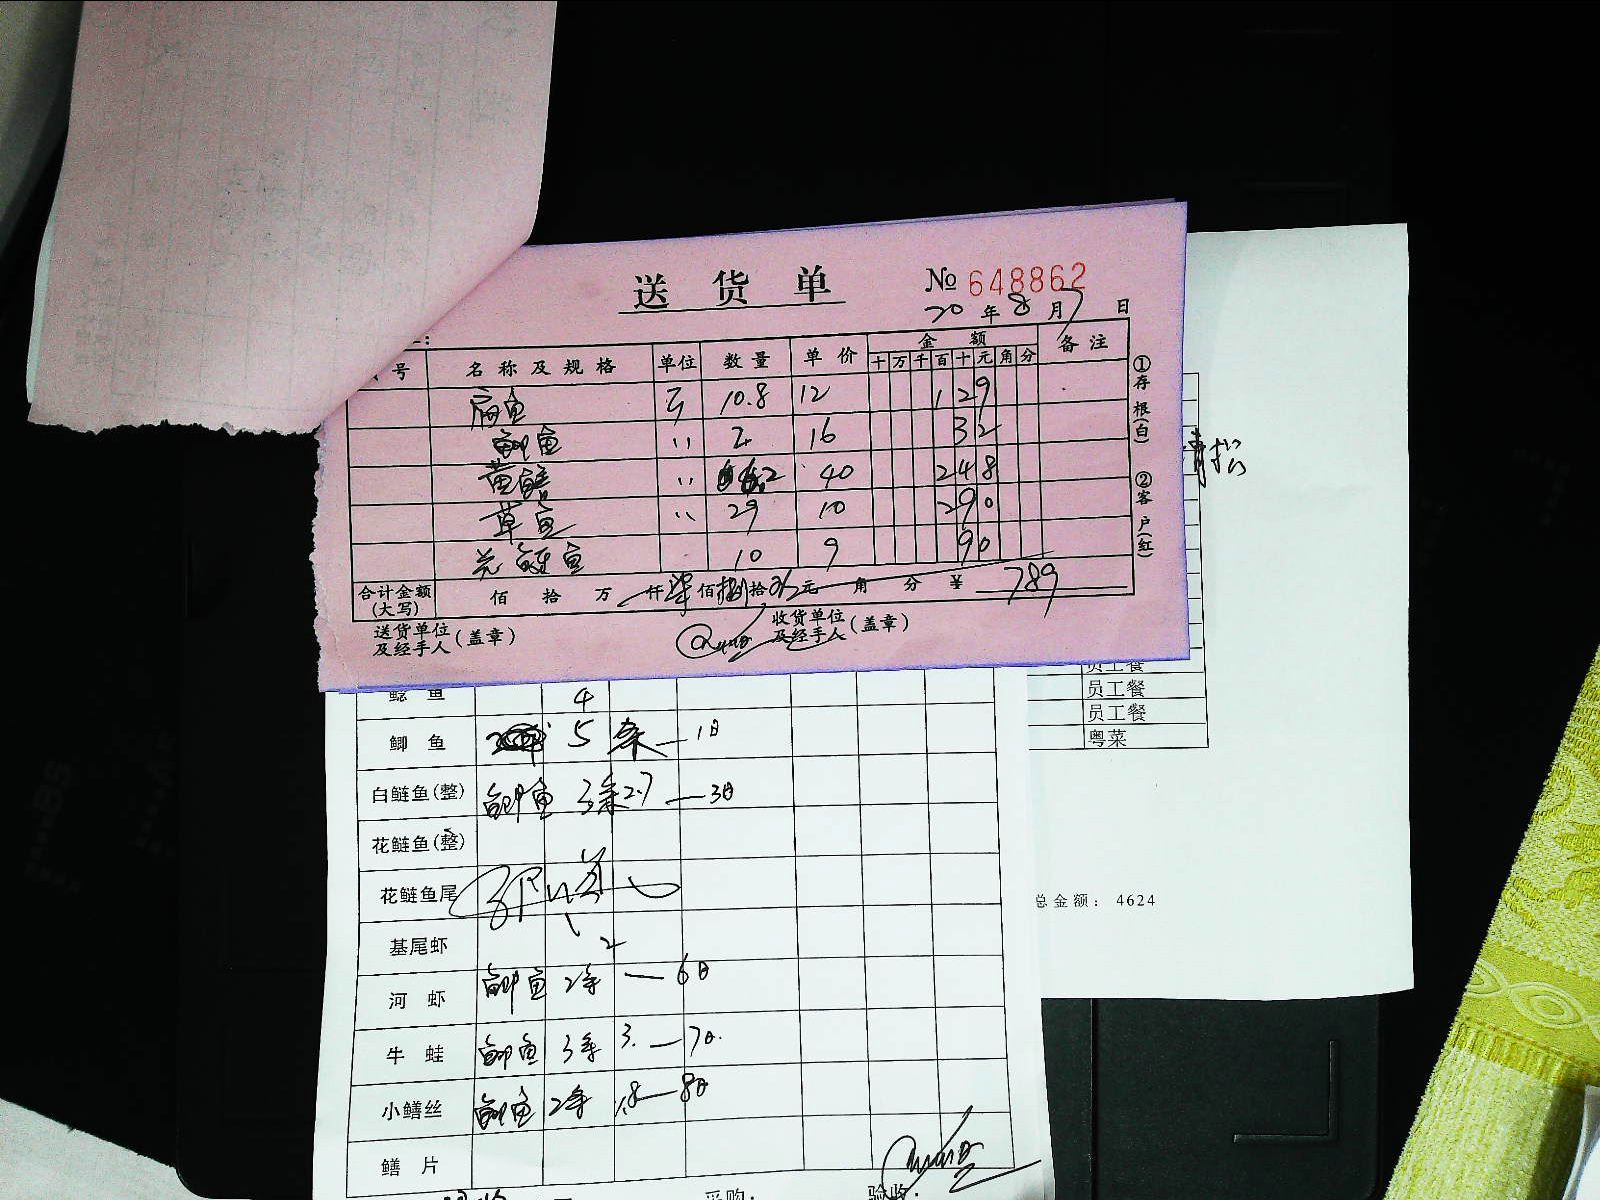 送货单 № 648862
20年8月7日
号 名称及规格 单位 数量 单价 金额 备注
十 万 千 百 十 元 角 分
扁鱼 斤 10.8 12 129
鲫鱼 〃 2 16 32
黄鳝 〃 6.2 40 248
草鱼 〃 29 10 290
花鲢鱼 10 9 90
合计金额(大写) 佰 拾 万 仟柒佰捌拾玖元 角 分 ¥ 789
送货单位及经手人(盖章) 收货单位及经手人(盖章)
①存根(白) ②客户(红)
员工餐
员工餐
员工餐
粤菜
总金额: 4624
鲶鱼 4
鲫鱼 5 条 — 1日
白鲢鱼(整) 鲫鱼 3条 2.7 — 3日
花鲢鱼(整)
花鲢鱼尾
基尾虾 2
河虾 鲫鱼 2条 — 6日
牛蛙 鲫鱼 3条 3. — 7日.
小鳝丝 鲫鱼 2条 1.8 — 8日
鳝片
采购: 验收: